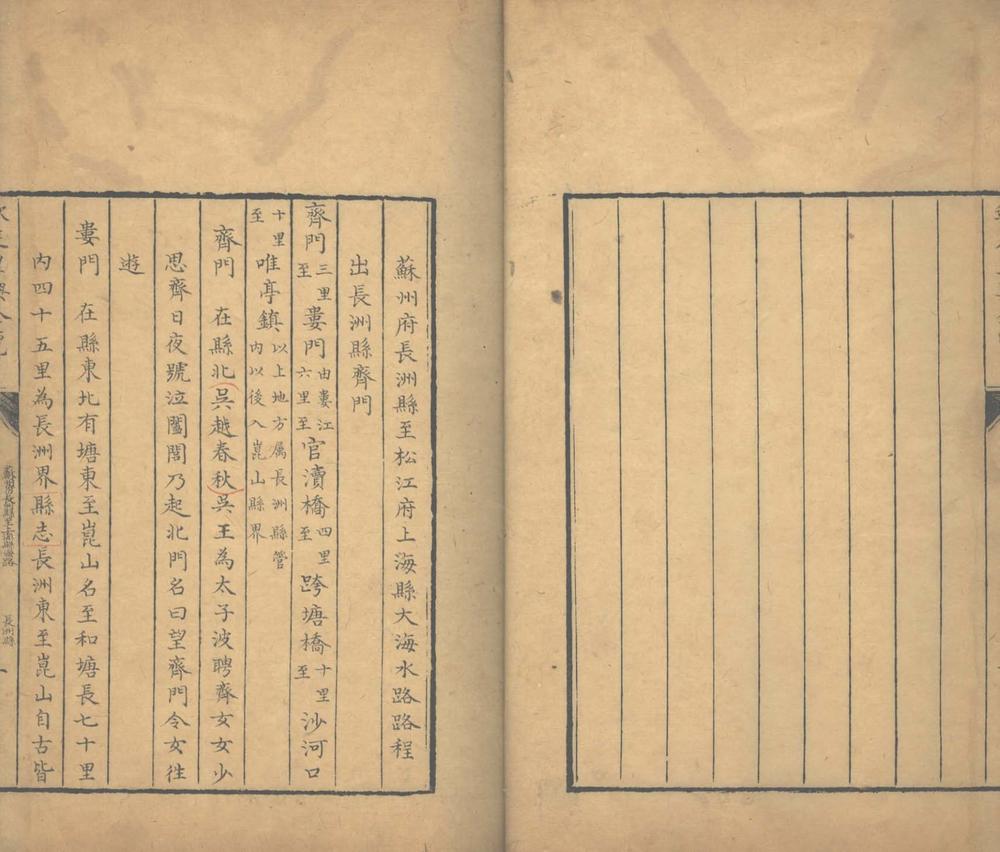 蘇州府長洲縣至松江府上海縣大海水路路程
出長洲縣齊門
齊門三里至婁門由婁江六里至官瀆橋四里至跨塘橋十里至沙河口
十里至唯亭鎮以上地方屬長洲縣管內以後入崑山縣界
齊門 在縣北吳越春秋吳王為太子波聘齊女女少
思齊日夜號泣闔閭乃起北門名曰望齊門令女徃
遊
婁門 在縣東北有塘東至崑山名至和塘長七十里
內四十五里為長洲界縣志長洲東至崑山自古皆
長洲縣
一